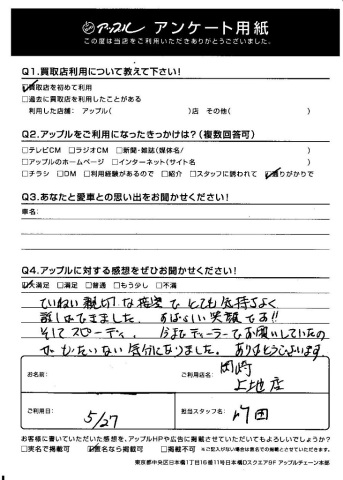 アップル アンケート用紙
この度は当店をご利用いただきありがとうございました。
Q1.買取店利用について教えて下さい!
☑買取店を初めて利用
□過去に買取店を利用したことがある
利用した店舗: アップル( )店 その他( )
Q2.アップルをご利用になったきっかけは?(複数回答可)
□テレビCM □ラジオCM □新聞・雑誌(媒体名/ )
□アップルのホームページ □インターネット(サイト名 )
□チラシ □DM □利用経験があるので □紹介 □スタッフに誘われて ☑通りがかりで
Q3.あなたと愛車との思い出をお聞かせください!
車名:
Q4.アップルに対する感想をぜひお聞かせください!
☑大満足 □満足 □普通 □もう少し □不満
ていねい親切な接客でとても気持ちよく
話しができました。すばらしい笑顔です!!
そしてスピーディ。今までディーラーでお願いしていたの
がもったいない気分になりました。ありがとうございます
お名前:
ご利用店名: 岡崎
上地店
ご利用日: 5/27
担当スタッフ名: 田
お客様に書いていただいた感想を、アップルHPや広告に掲載させていただいてもよろしいでしょうか?
□実名で掲載可 ☑匿名なら掲載可 □不可 ※ご記入がない場合は匿名での掲載とさせていただきます。
東京都中央区日本橋1丁目16番11号日本橋Dスクエア9F アップルチェーン本部